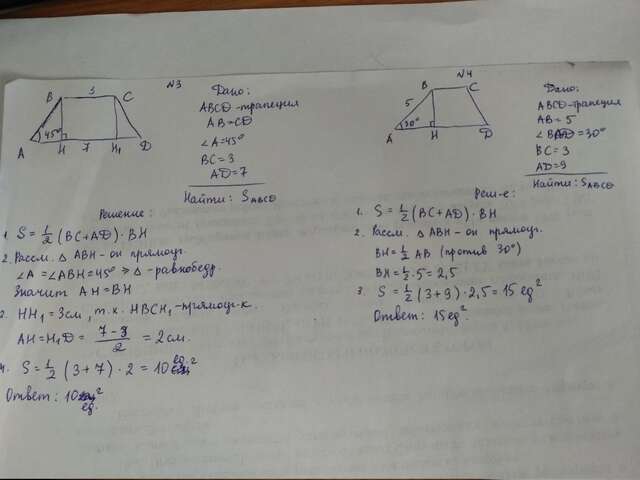 №3
B 3 C
45°
A H 7 H₁ D
Дано:
ABCD - трапеция
AB = CD
∠A = 45°
BC = 3
AD = 7
Найти: S ABCD
Решение:
1. S = 1/2 (BC + AD) · BH
2. Рассм. △ ABH - он прямоуг.
∠A = ∠ABH = 45° ⇒ △ - равнобедр.
Значит AH = BH
2. HH₁ = 3см, т.к. HBCH₁ - прямоуг-к.
AH = H₁D = 7-3/2 = 2см.
4. S = 1/2 (3 + 7) · 2 = 10 ед.²
Ответ: 10 ед.²
№4
B C
5
30°
A H D
Дано:
ABCD - трапеция
AB = 5
∠BAD = 30°
BC = 3
AD = 9
Найти: S ABCD
Реш-е:
1. S = 1/2 (BC + AD) · BH
2. Рассм. △ ABH - он прямоуг.
BH = 1/2 AB (против 30°)
BH = 1/2 · 5 = 2,5
3. S = 1/2 (3 + 9) · 2,5 = 15 ед²
Ответ: 15 ед².